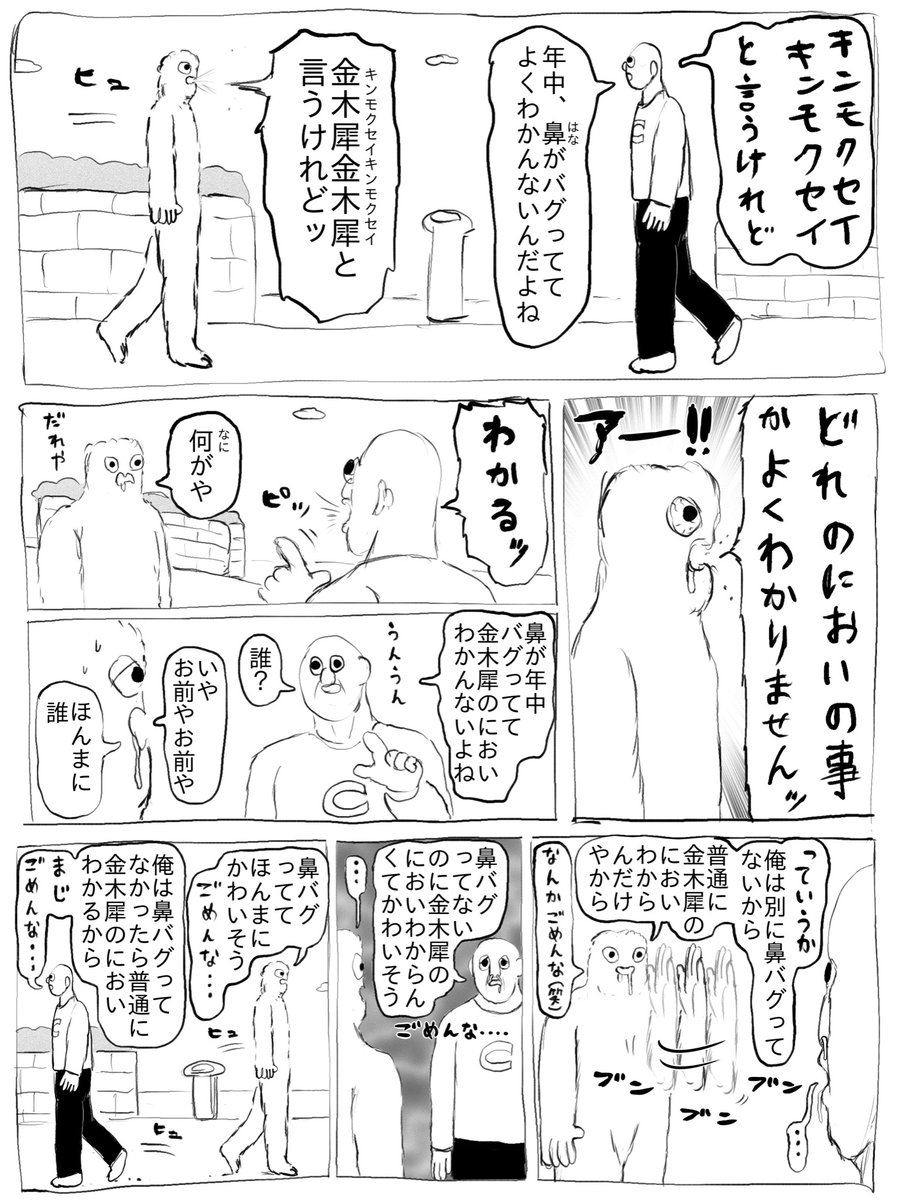 キンモクセイ
キンモクセイ
と言うけれど
年中、鼻がバグってて
よくわかんないんだよね
はな
金木犀金木犀と
キンモクセイキンモクセイ
言うけれどッ
ヒュ
どれのにおいの事
かよくわかりませんッ
アー!!
わかるッ
ピッ
何がや
なに
だれや
鼻が年中
バグってて
金木犀のにおい
わかんないよね
うんうん
誰?
いや
お前やお前や
ほんまに
誰
っていうか
俺は別に鼻バグって
ないから
普通に
金木犀の
におい
わから
んだけ
やから
なんかごめんな(笑)
ブン
ブン
ブン
・・・
鼻バグ
ってない
のに金木犀の
においわからん
くてかわいそう
ごめんな・・・・
・・・
鼻バグ
ってて
ほんまに
かわいそう
ごめんな・・・
ヒュ
俺は鼻バグって
なかったら普通に
金木犀のにおい
わかるから
まじ
ごめんな・・・
ヒュ